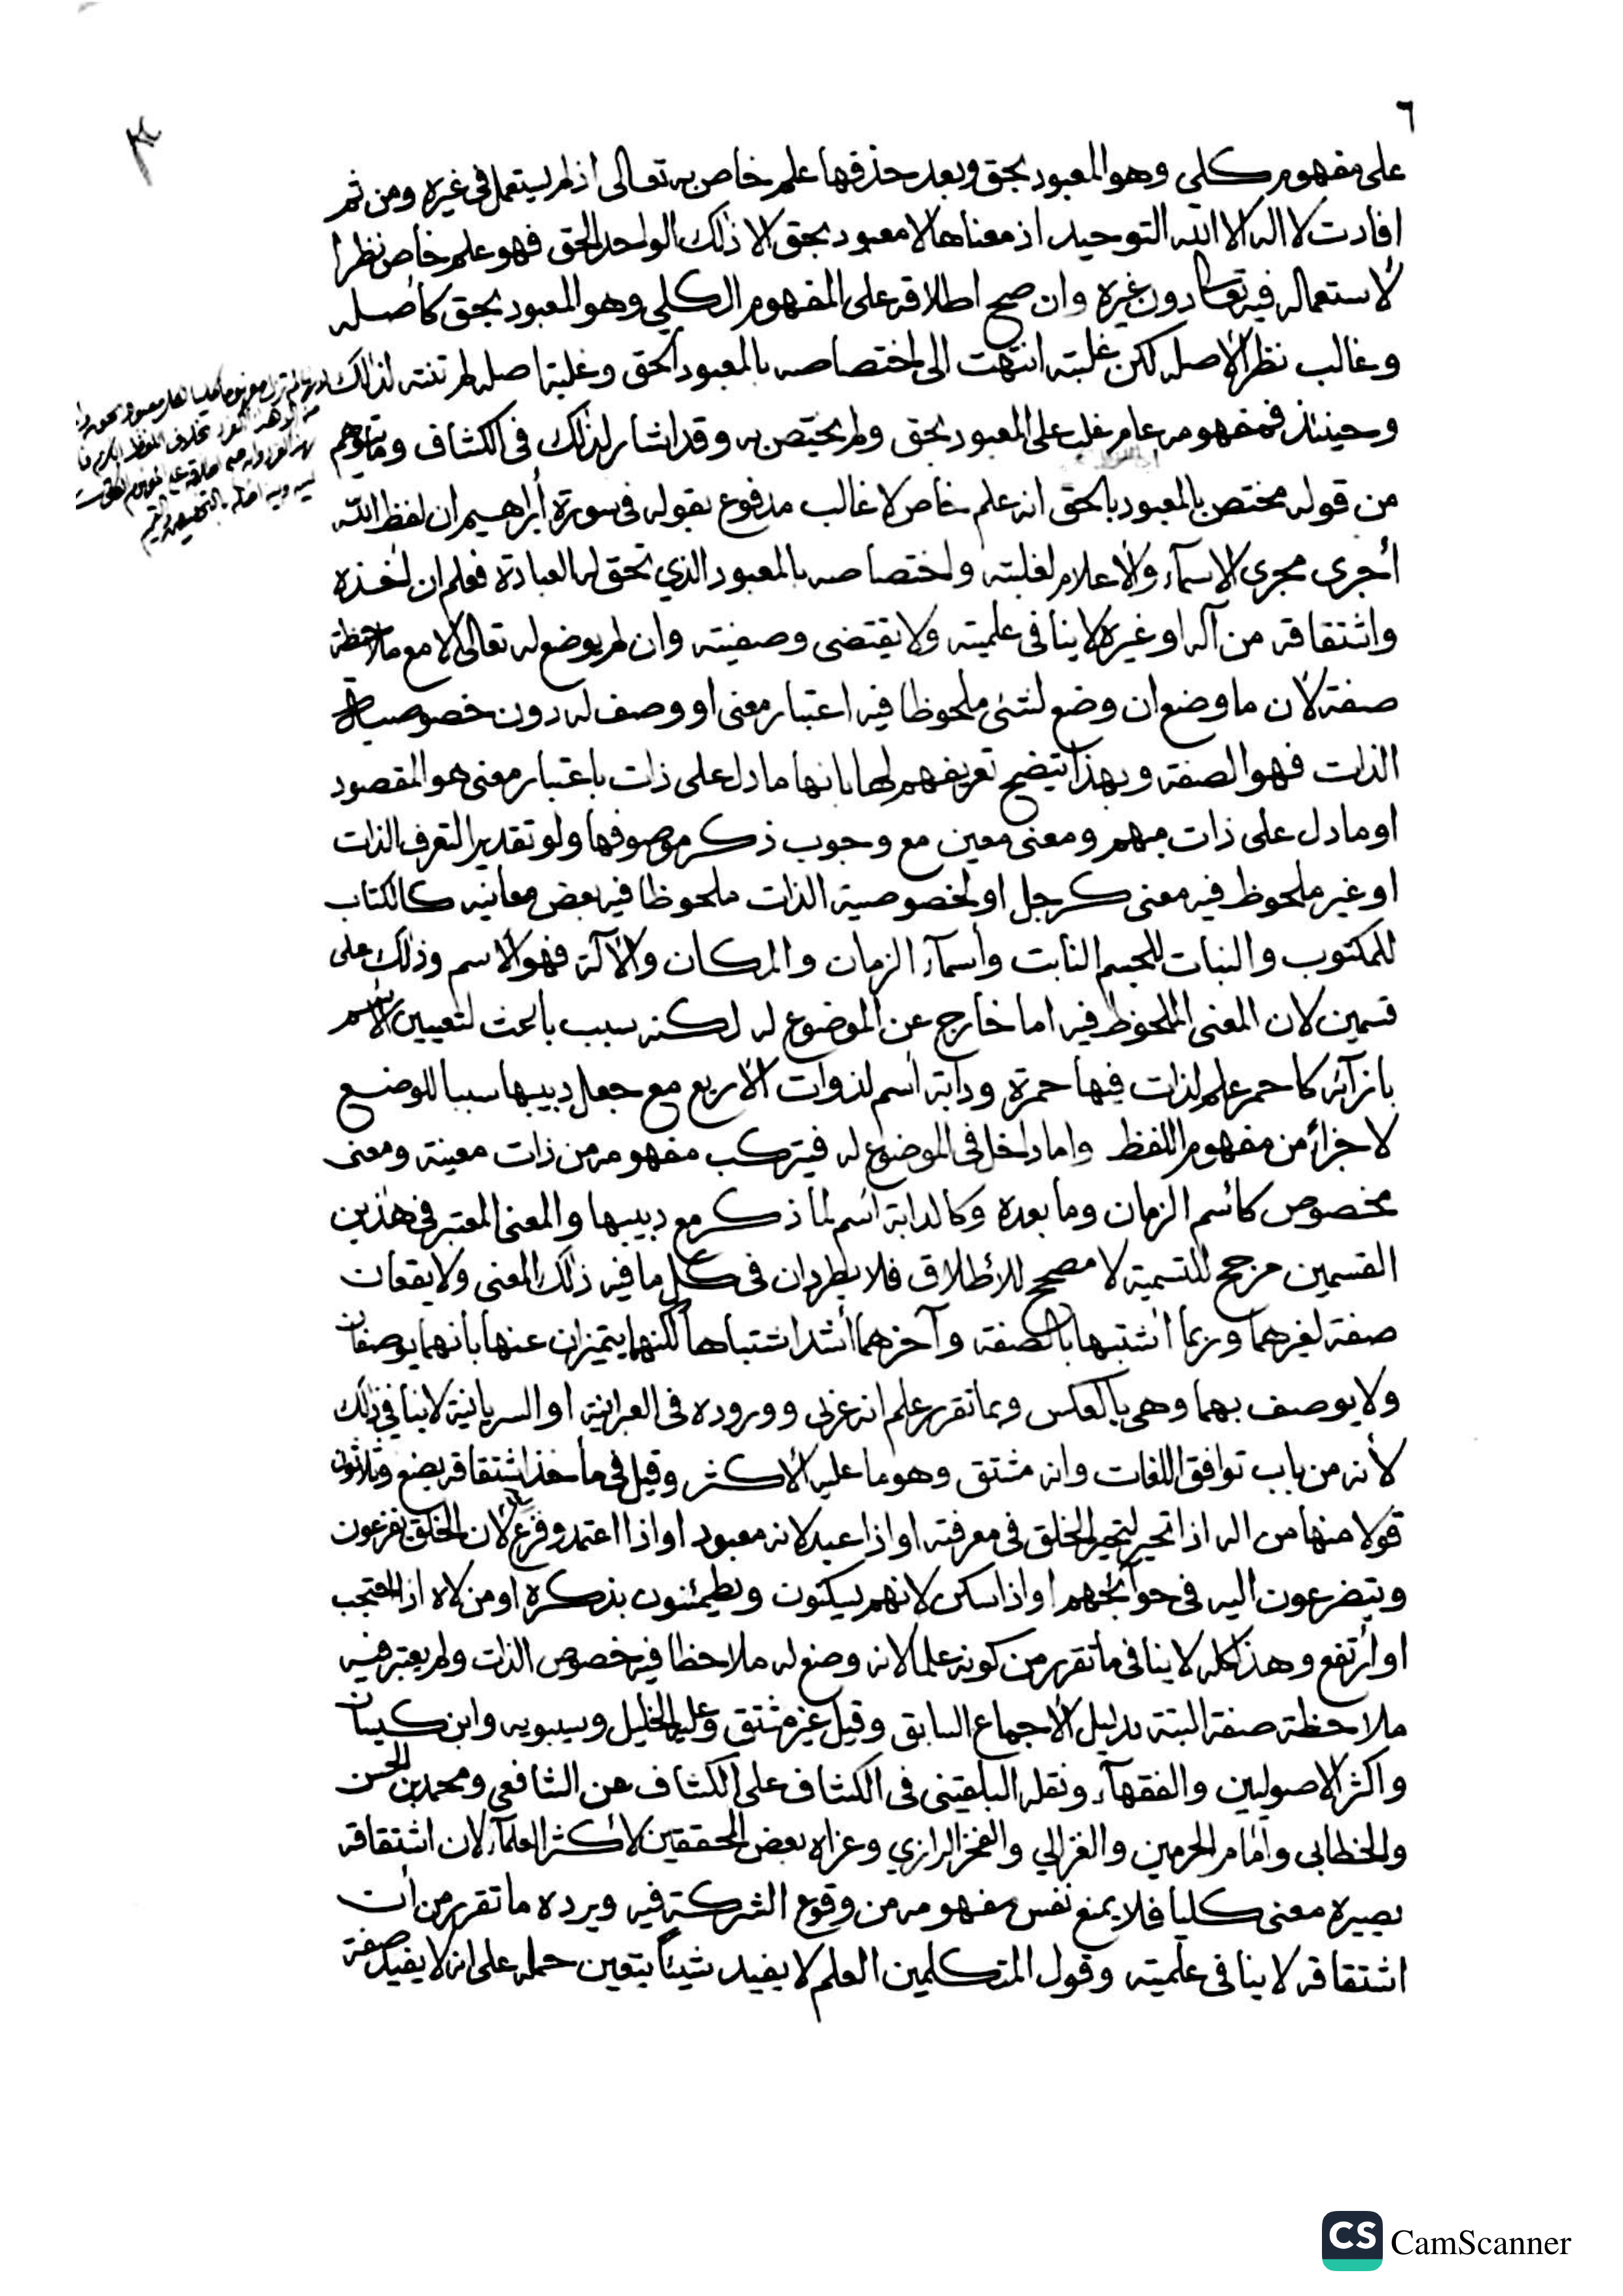 ٦
على مفهوم كلي وهو المعبود بحق وبعد حذفها علم خاص به تعالى اذ لم يستعمل في غيره ومن ثم
افادت لا اله الا الله التوحيد اذ معناها لا معبود بحق الا ذلك الواحد الحق فهو علم خاص نظرا
لاستعماله فيه تعالى دون غيره وان صح اطلاقه على المفهوم الكلي وهو المعبود بحق كأصله
وغالب نظرا لاصله لكن غلبته انتهت الى اختصاصه بالمعبود الحق وغلبة اصله لم تنته لذلك
وحينئذ فمفهومه عام غلب على المعبود بحق ولم يختص به وقد اشار لذلك في الكشاف وما يتوهم
من قوله مختص بالمعبود بالحق انه علم خاص لا غالب مدفوع بقوله في سورة أبراهيم ان لفظ الله
أجرى مجرى الاسمآء والاعلام لغلبته واختصاصه بالمعبود الذي تحق له العبادة فعلم ان اخذه
واشتقاقه من آله او غيره لا ينافى علميته ولا يقتضى وصفيته وان لم يوضع له تعالى الا مع ملاحظة
صفة لان ما وضع ان وضع لشئ ملحوظا فيه اعتبار معنى او وصف له دون خصوصية
الذات فهو الصفة وبهذا يتضح تعريفهم لها بانها ما دل على ذات باعتبار معنى هو المقصود
او ما دل على ذات مبهم ومعنى معين مع وجوب ذكر موصوفها ولو تقديرا لتعرف الذات
او غير ملحوظ فيه معنى كرجل او لخصوصية الذات ملحوظا فيه بعض معانيه كالكتاب
للمكتوب والنبات للجسم النابت وأسمآء الزمان والمكان والآلة فهو الاسم وذلك على
قسمين لان المعنى الملحوظ فيه اما خارج عن الموضوع له لكنه سبب باعث لتعيين الاسم
بازآئه كاحمر علم لذات فيها حمرة ودابة اسم لذوات الاربع مع جعل دبيبها سببا للوضع
لا جزأ من مفهوم اللفظ واما داخل في الموضوع له فيتركب مفهومه من ذات معينة ومعنى
مخصوص كأسم الزمان وما بعده وكالدابة اسم لما ذكر مع دبيبها والمعنى المعتبر في هذين
القسمين مرجح للتسمية لا مصحح للأطلاق فلا يطردان فى كل ما فيه ذلك المعنى ولا يقعان
صفة لغيرهما وربما اشتبها بالصفة وآخرهما أشد اشتباها لكنهما يتميزان عنها بانهما يوصفان
ولا يوصف بهما وهي بالعكس وبما تقرر علم انه عربي ووروده فى العبرانية او السريانية لا ينافي ذلك
لأنه من باب توافق اللغات وانه مشتق وهو ما عليه الاكثر وقيل في مأخذ اشتقاقه بضع وثلاثون
قولا منها من اله اذا تحير لتحير الخلق فى معرفته او اذا عبد لانه معبود او اذا اعتمد وفزع لان الخلق يفزعون
ويتضرعون اليه فى حوآئجهم او اذا سكن لانهم يسكنون ويطمئنون بذكره او من لاه اذا احتجب
او ارتفع وهذا كله لا ينافى ما تقرر من كونه علما لانه وضع له ملاحظا فيه خصوص الذات ولم يعتبر فيه
ملاحظة صفة البتة بدليل الاجماع السابق وقيل غير مشتق وعليه الخليل وسيبويه وابن كيسان
واكثر الاصوليين والفقهآء ونقله البلقيني فى الكشاف على الكشاف عن الشافعي ومحمد بن الحسن
والخطابى وامام الحرمين والغزالي والفخر الرازي وعزاه بعض المحققين لاكثر العلمآء لان اشتقاقه
يصيره معنى كليا فلا يمنع نفس مفهومه من وقوع الشركة فيه ويرده ما تقرر من أن
اشتقاقه لا ينافى علميته وقول المتكلمين العلم لا يفيد شيئا يتعين حمله على انه لا يفيد صفة
CS CamScanner